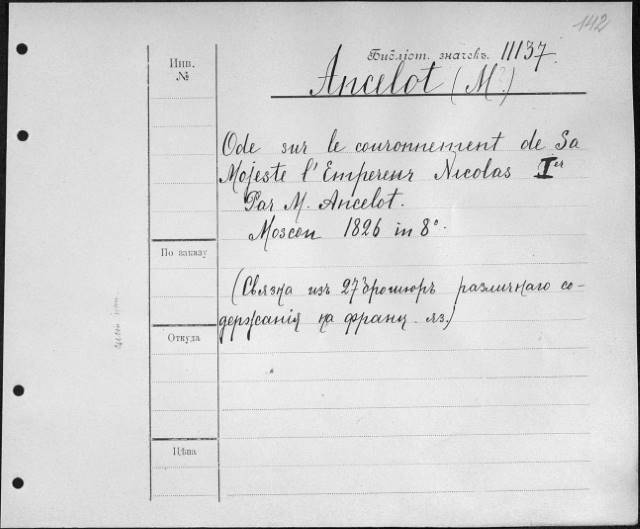 142
Библіот. значекъ. 11137.
Инв.
№
Ancelot (M.)
Ode sur le couronnement de Sa
Majeste l'Empereur Nicolas Ier
Par M. Ancelot.
Moscou 1826 in 8°.
По заказу
(Связка изъ 27 брошюръ различнаго со-
держанія на франц. яз.)
Откуда
Цѣна